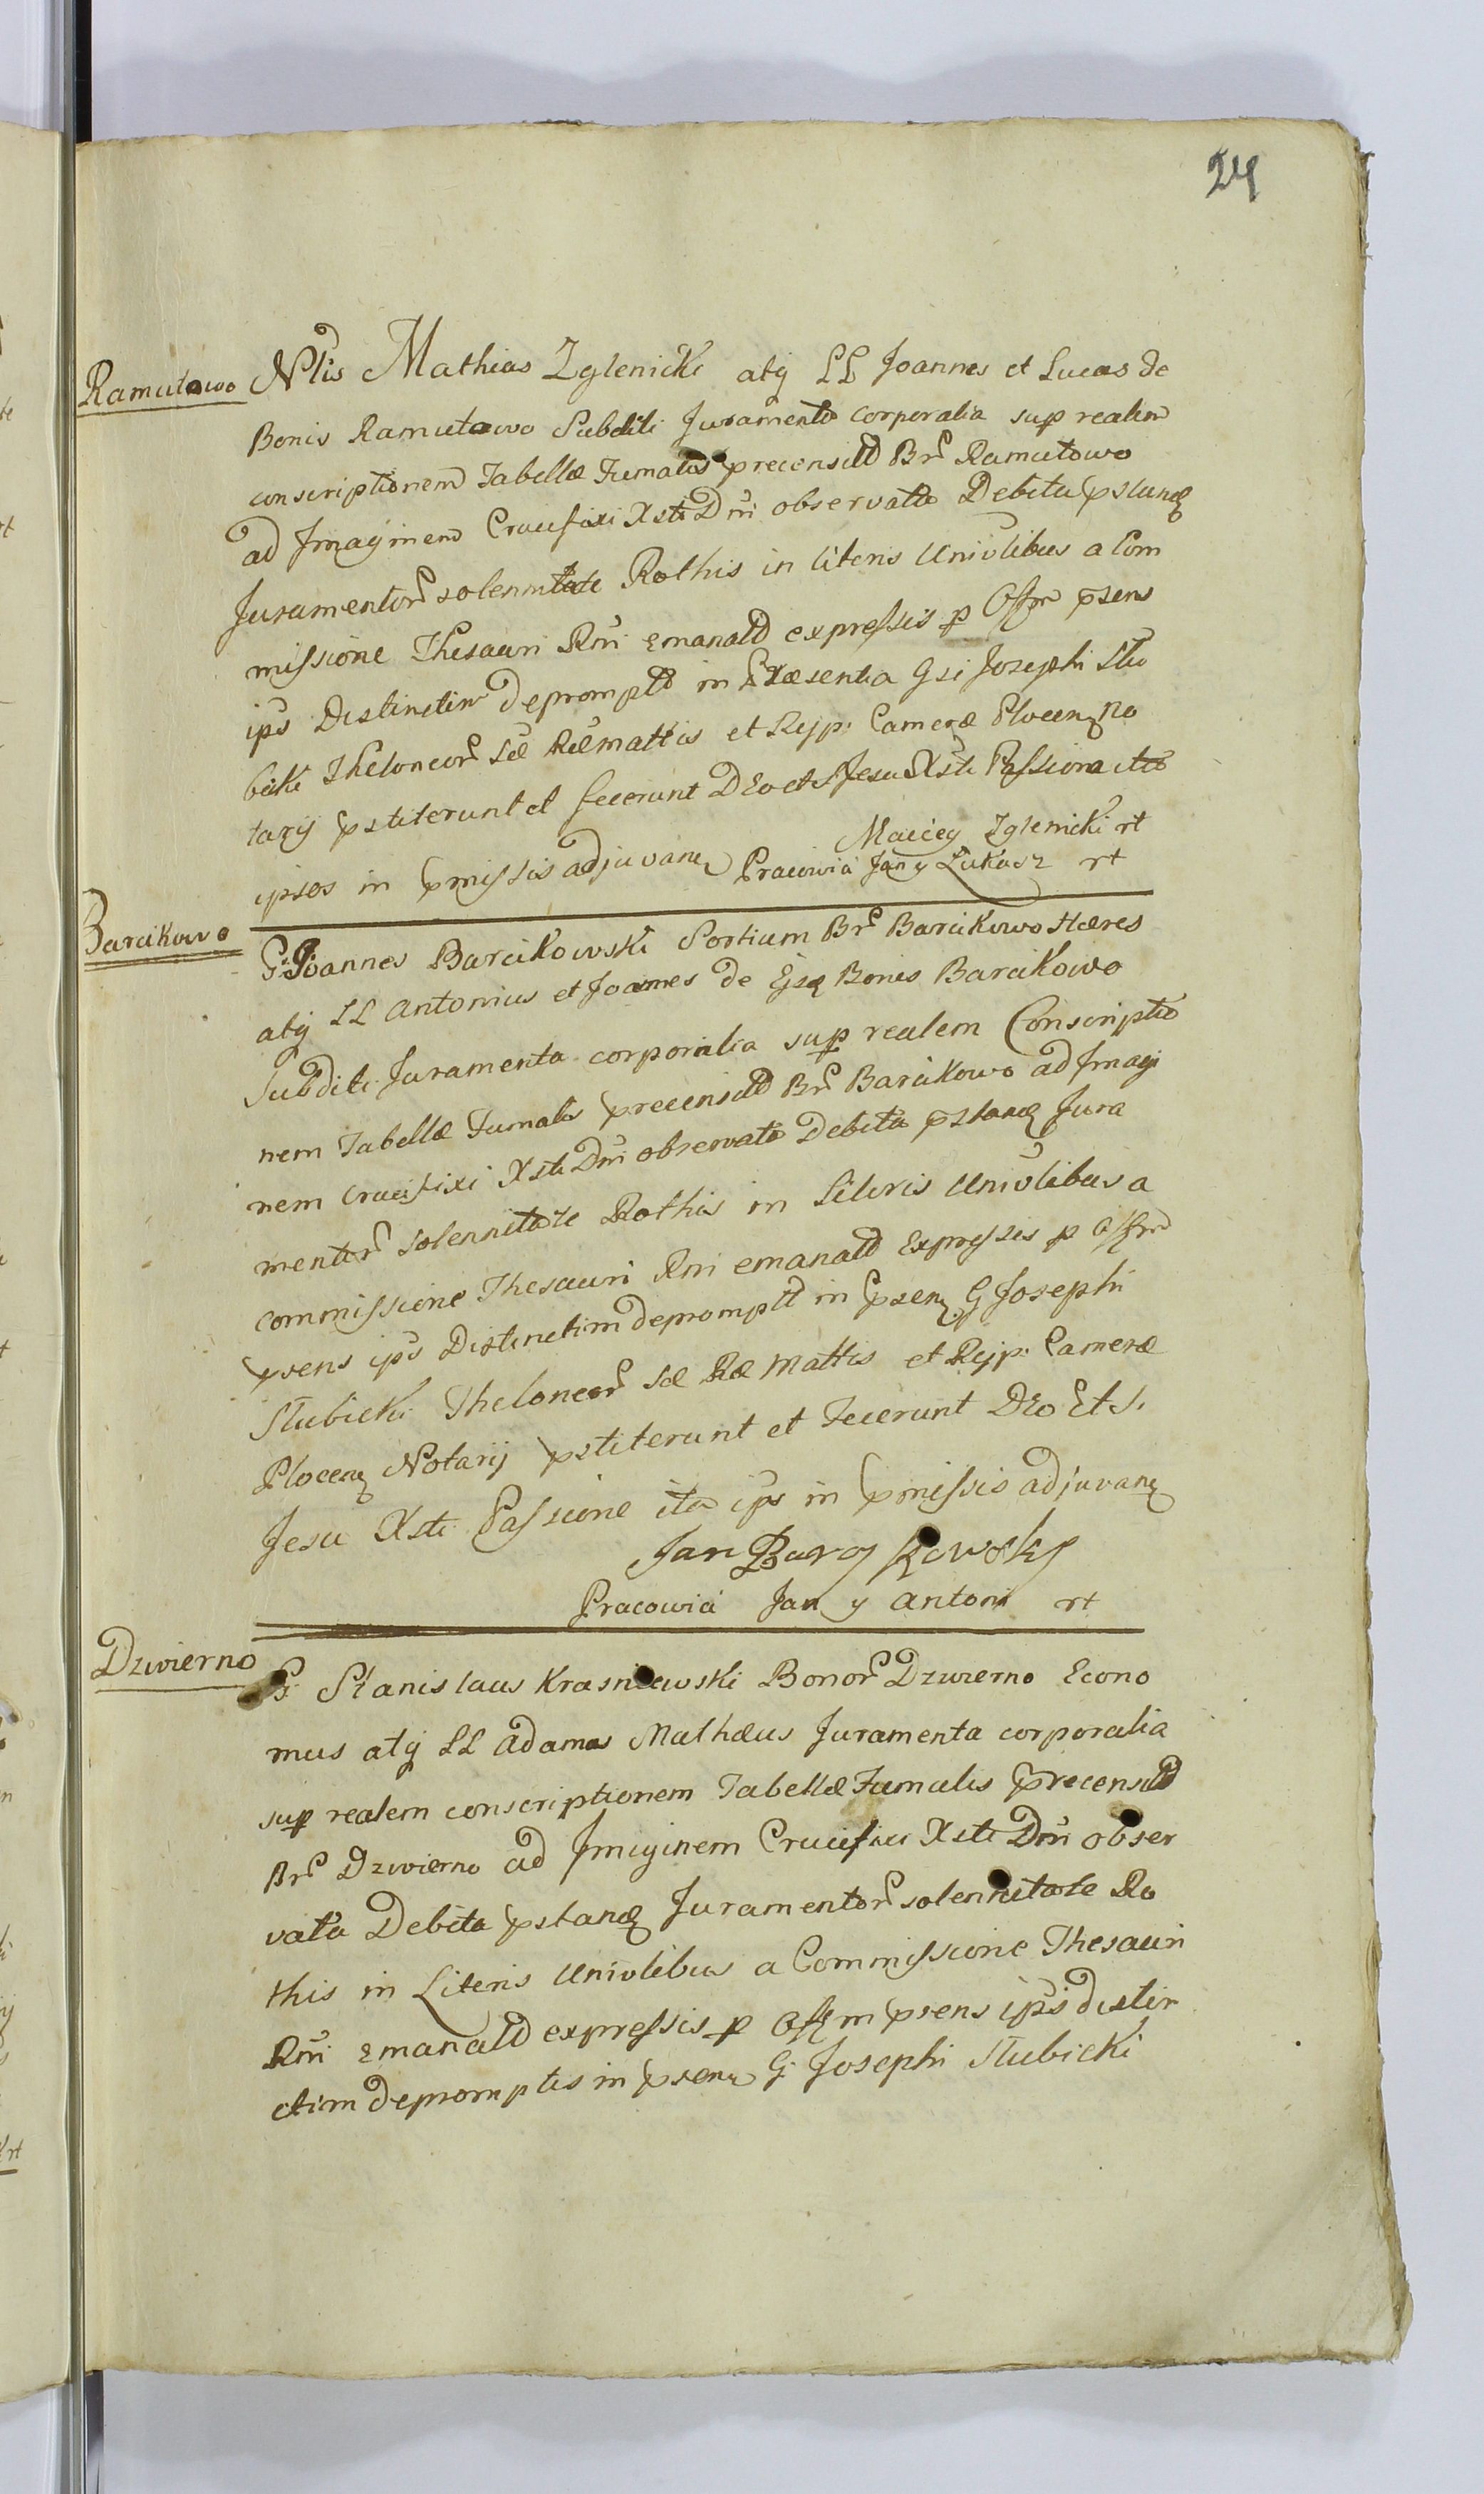 24
Ramutowo
Nlis Mathias Zglenicki atq LL Joannes et Lucas de
Bonis Ramutowo Subditi Juramenta corporalia sup realem
conscriptionem Tabellæ Fumalis precensitt Brr Ramutowo
ad Imaginem Crucifixi Xsti Dni observata Debita pstandæ
Juramentor solennitate Rothis in literis Univlibus a Com
missione Thesauri Rni emanatt expressis p Offm psens
ips Distinctim deprompt in Præsentia Gsi Josephi Stu
bicki Theloneor Sæ Ræ mattis et Reip: Cameræ Plocen No
tarij pstiterunt et fecerunt DEo et S Jesu Xsti Passione ita
ipsos in pmissis adjuvan
Maciey Zglenicki rt
Pracowici Jan y Lukasz rt
Barcikowo
G: Joannes Barcikowski Sortium Brr Barcikowo Hæres
atq LL Antonius et Joannes de Ejsq Bonis Barcikowo
Subditi Juramenta corporalia sup realem Conscriptio
nem Tabellæ Fumalis precensitt Brr Barcikowo ad Imagi
nem Crucifixi Xsti Dni observata Debita pstandæ Jura
mentor solennitate Rothis in Literis Univlibus a
commissione Thesauri Rni emanatt Expressis p Offm
psens ips Distinctim deprompt in psen G Josephi
Stubicki Theloneor Sæ Ræ Mattis et Reip: Cameræ
Plocen Notarij pstiterunt et Fecerunt DEo Et S.
Jesu Xsti Passione ita ips in pmissis adjuvan
Jan Barcykowsky
Pracowici Jan y Antoni rt
Dzwierno
G: Stanislaus Krasniewski Bonor Dzwierno Econo
mus atq LL Adamus Mathæus Juramenta corporalia
sup realem conscriptionem Tabellæ Fumalis precensitt
Brr Dzwierno ad Imaginem Crucifixi Xsti Dni obser
vata Debita pstandæ Juramentor solennitate Ro
this in Literis Univlibus a Commissione Thesauri
Rni emanatt expressis p Offm psens ips distin
ctim depromptis in psen G: Josephi Stubicki